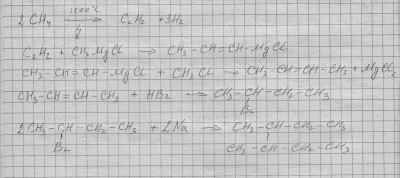 2 CH₄ 1500°C → C₂H₂ + 3H₂
C₂H₂ + CH₃MgCl → CH₃-CH=CH-MgCl
CH₃-CH=CH-MgCl + CH₃Cl → CH₃-CH=CH-CH₃ + MgCl₂
CH₃-CH=CH-CH₃ + HBr → CH₃-CH-CH₂-CH₃
Br
2CH₃-CH-CH₂-CH₃ + 2Na → CH₃-CH-CH₂-CH₃
Br
CH₃-CH-CH₂-CH₃